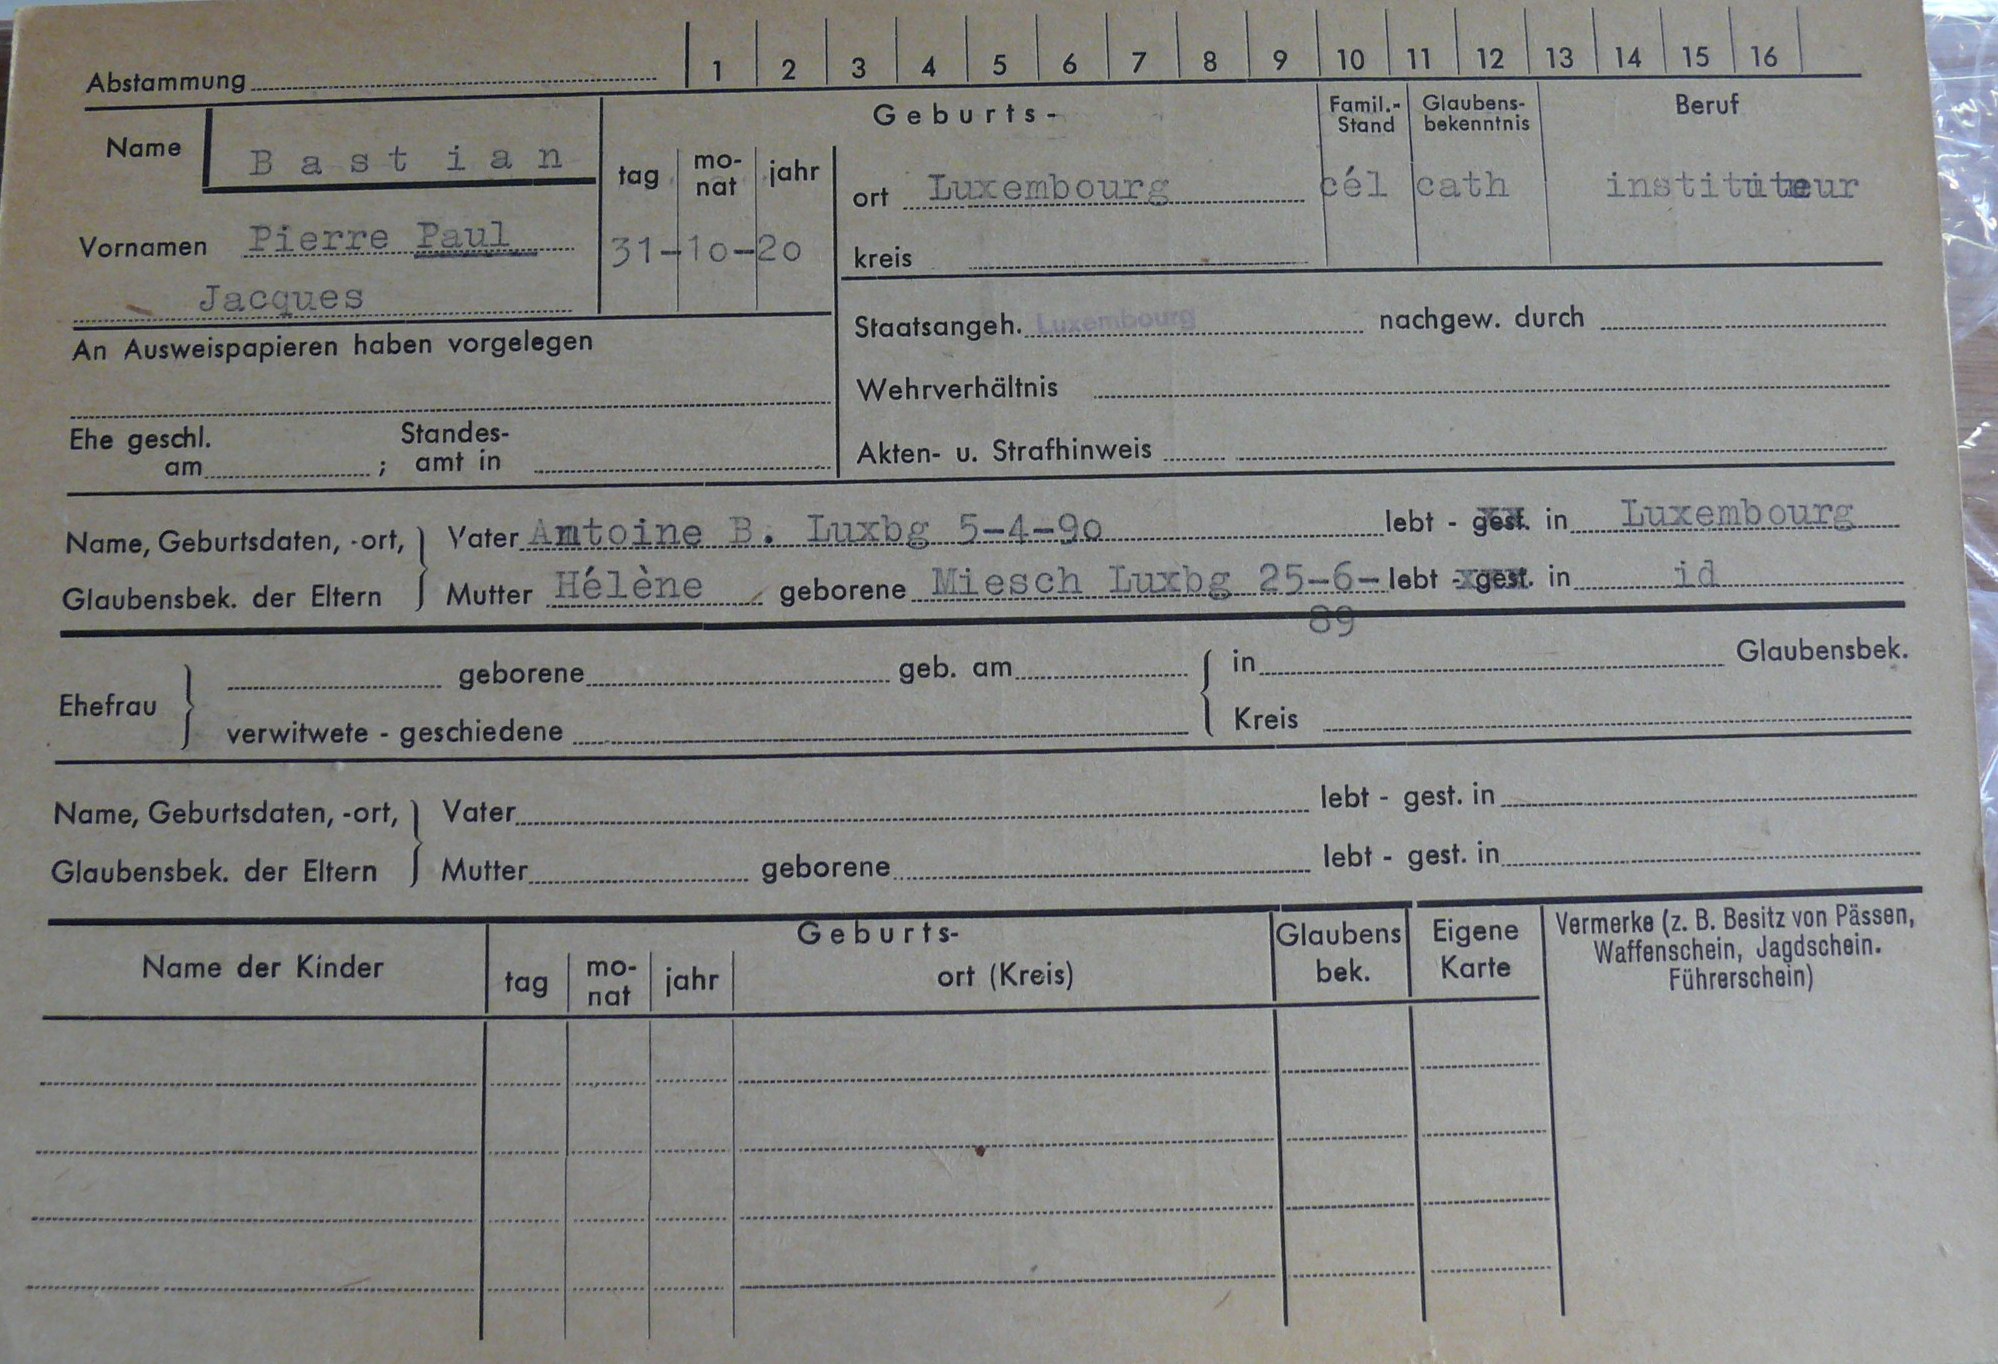 Abstammung 1 2 3 4 5 6 7 8 9 10 11 12 13 14 15 16
Name Bastian
Geburts-
Famil.-Stand Glaubens-bekenntnis Beruf
tag mo-nat jahr
ort Luxembourg cél cath instituteur
Vornamen Pierre Paul 31-10-20
kreis
Jacques
Staatsangeh. Luxembourg nachgew. durch
An Ausweispapieren haben vorgelegen
Wehrverhältnis
Ehe geschl. am ; Standes-amt in
Akten- u. Strafhinweis
Name, Geburtsdaten, -ort, Vater Antoine B. Luxbg 5-4-90 lebt - gest. in Luxembourg
Glaubensbek. der Eltern Mutter Hélène geborene Miesch Luxbg 25-6- lebt - gest. in id
89
geborene geb. am in Glaubensbek.
Ehefrau
verwitwete - geschiedene Kreis
Name, Geburtsdaten, -ort, Vater lebt - gest. in
Glaubensbek. der Eltern Mutter geborene lebt - gest. in
Name der Kinder
Geburts-
tag mo-nat jahr ort (Kreis)
Glaubens bek.
Eigene Karte
Vermerke (z. B. Besitz von Pässen,
Waffenschein, Jagdschein.
Führerschein)